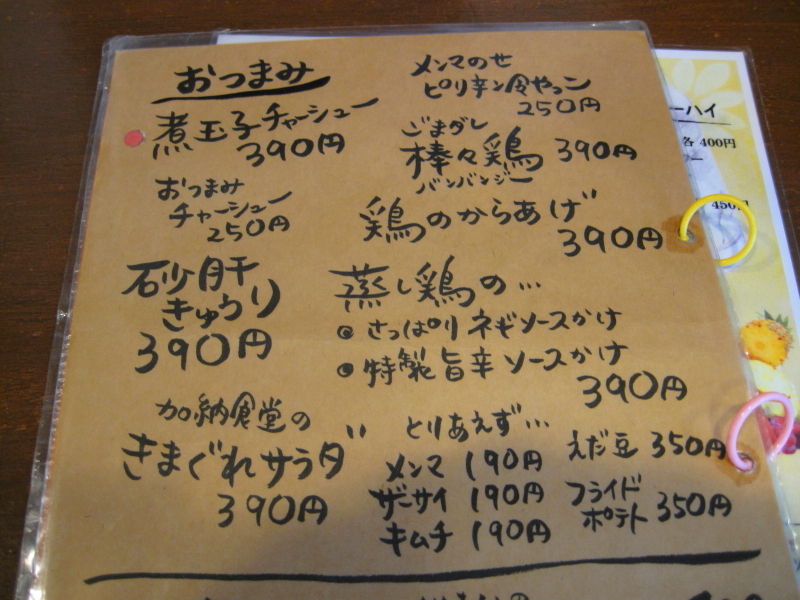 おつまみ
煮玉子チャーシュー
390円
おつまみ
チャーシュー
250円
砂肝
きゅうり
390円
加納食堂の
きまぐれサラダ
390円
メンマのせ
ピリ辛冷やっこ
250円
ごまダレ
棒々鶏 390円
バンバンジー
鶏のからあげ
390円
蒸し鶏の…
さっぱりネギソースかけ
特製旨辛ソースかけ
390円
とりあえず…
メンマ 190円
ザーサイ 190円
キムチ 190円
えだ豆 350円
フライド
ポテト 350円
ーハイ
各 400円
ワー
450円